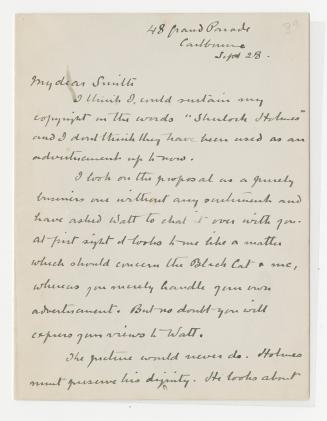 89
48 Grand Parade
Eastbourne
Sept 28.
My dear Smith
I think I could sustain my
copyright in the words "Sherlock Holmes"
and I dont think they have been used as an
advertisement up to now.
I look on the proposal as a purely
business one without any sentiment and
have asked Watt to chat it over with you.
At first sight it looks to me like a matter
which should concern the Black Cat & me,
whereas you merely handle your own
advertisement. But no doubt you will
express your views to Watt.
The picture would never do. Holmes
must preserve his dignity. He looks about